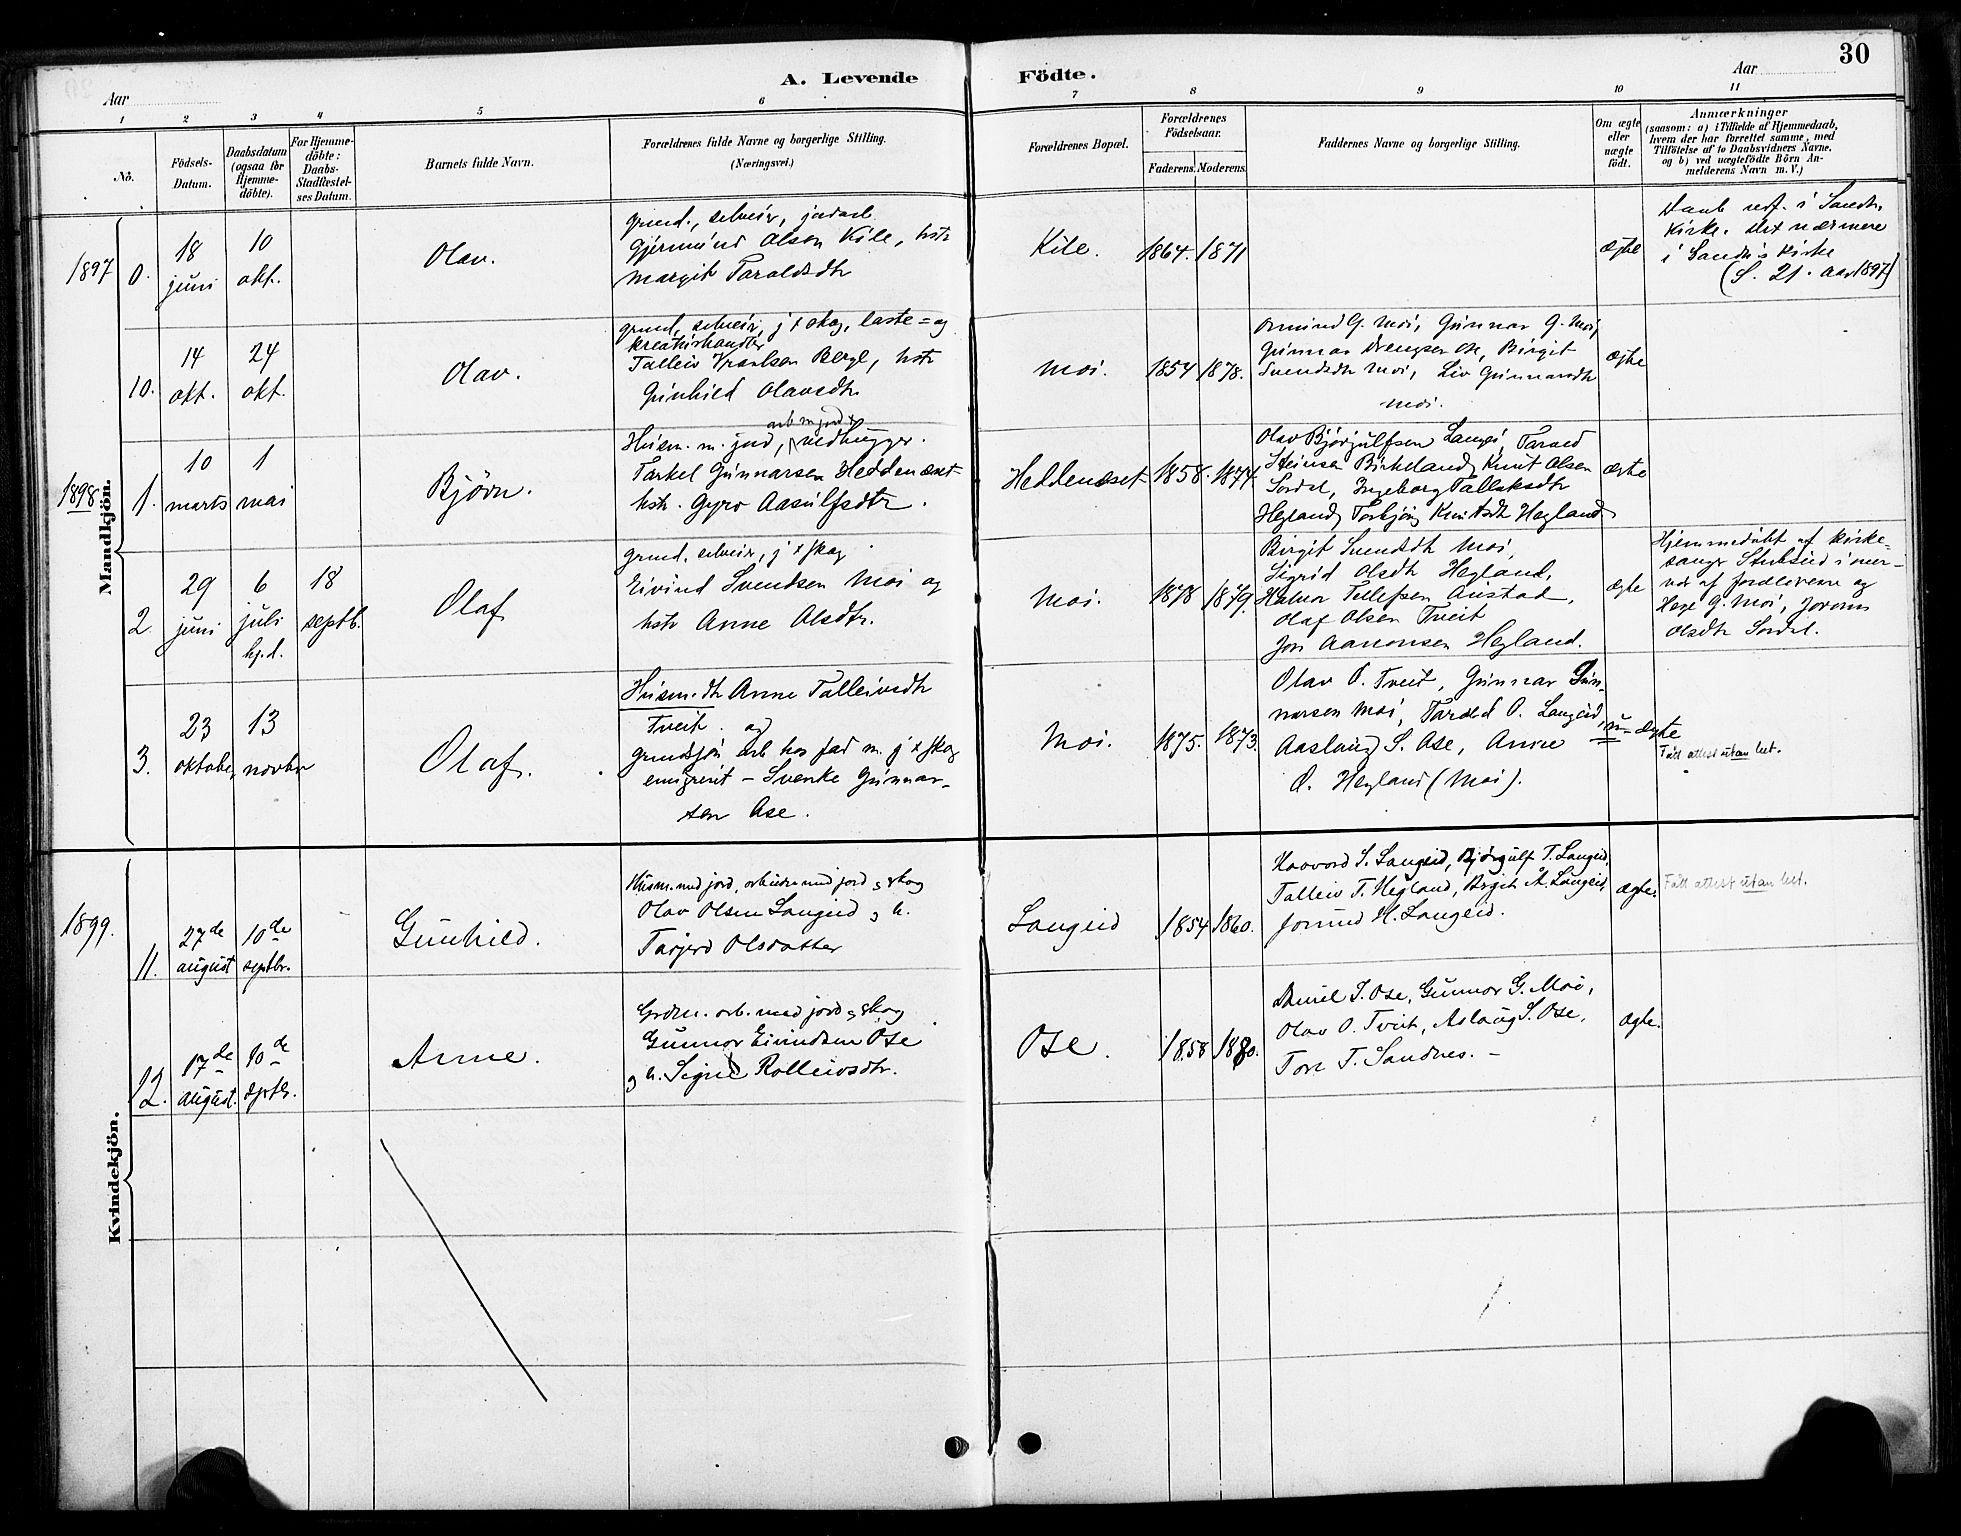 30
A. Levende Födte.
Aar
Aar
1 2 3 4 5 6 7 8 9 10 11
No.
Födsels-Datum.
Daabsdatum (ogsaa for Hjemmedöbte).
For Hjemmedöbte: Daabs-Stadfestelses Datum.
Barnets fulde Navn.
Forældrenes fulde Navne og borgerlige Stilling.
(Næringsvei.)
Forældrenes Bopæl.
Forældrenes Födselsaar.
Faderens. Moderens.
Faddernes Navne og borgerlige Stilling.
Om ægte eller uægte födt.
Anmærkninger
(saasom: a) i Tilfælde af Hjemmedaab,
hvem der har forrettet samme, med
Tilföielse af to Daabsvidners Navne,
og b) ved uægtefödte Börn An-
melderens Navn m. V.)
Mandkjön.
1897
0.
18 juni
10 okt.
Olav.
grmd., selveier, jordarb.
Gjermund Olsen Kile, hstr
Margit Taraldsdtr
Kile.
1864. 1871
ægte
Daab ref. i Sandn.
Kirke. det nærmere
i Sandn's Kirke
(S. 21. aar 1897)
10.
14 okt.
24 okt.
Olav.
grmd, selveier, j & skog, laste= og
kreaturhandler
Talleiv Bergt, hstr
Gunhild Olavsdtr
Moi.
1854 1878.
G. Moi, Gunnar G. Moi,
Gunnar Drengsen Ose, Birgit
Svendsdtr Moi, Liv Gunnarsdtr
Moi.
ægte
1898.
1.
10 marts
1 mai
Björn.
Husm. m. jord, arb m jord & vedhugger.
Tarkel Gunnarsen Heddenæset
hstr. Gyro Aasulfsdtr.
Heddenæset
1858. 1874.
Olav Björgulfsen Langei, Tarald
Steinsen Birkeland, Knut Olsen
Sordal, Ingeborg Tallaksdtr
Hegland, Torbjörg Knutsdtr Hegland
ægte
2.
29 juni
6 juli hj.d.
18 septb.
Olaf
grmd. selveier, j & skog
Eivind Svendsen Moi og
hstr Anne Olsdtr.
Moi.
1878 1879.
Birgit Svendsdtr Moi,
Sigrid Olsdtr Hegland,
Halvor Tellefsen Austad,
Olaf Olsen Tveit
Jon Aanonsen Hegland.
ægte
Hjemmedöbt af kirke=
sanger Stuksrud i nær-
vær af forældrene og
Hege G. Moi, Joronn
Olsdtr Sordal.
3.
23 oktober
13 novbr
Olaf.
Husm.dtr Anne Talleivsdtr
Tveit og
grmdssön arb hos fad m. j & skog
emigrert – Sverke Gunnar-
sen Ose.
Moi.
1875. 1873.
Olav O. Tveit, Gunnar Gun-
narsen Moi, Tarald O. Langeid,
Aaslaug S. Ose, Anne
O. Hegland (Moi).
u-ægte
Fått attest utan bet.
Kvindekjön.
1899.
11.
27de august
10de septbr.
Gunhild.
Husm. med jord, arbeider med jord og skog
Olav Olsen Langeid og h.
Tarjerd Olsdatter
Langeid
1854 1860.
Haavord S. Langeid, Björgulf T. Langeid,
Talleiv T. Hegland, Birgit A. Langeid,
Jorund H. Langeid.
ægte.
Fått attest utan bet.
12.
17de august.
10de septbr.
Anne.
Grdm. arb. med jord og skog
Gunnor Eivindsen Ose
og h. Signe Rolleivsdtr.
Ose.
1858 1880.
Daniel S. Ose, Gunnor G. Moi,
Olav O. Tveit, Aslaug S. Ose,
Tore T. Sandnes. –
ægte.